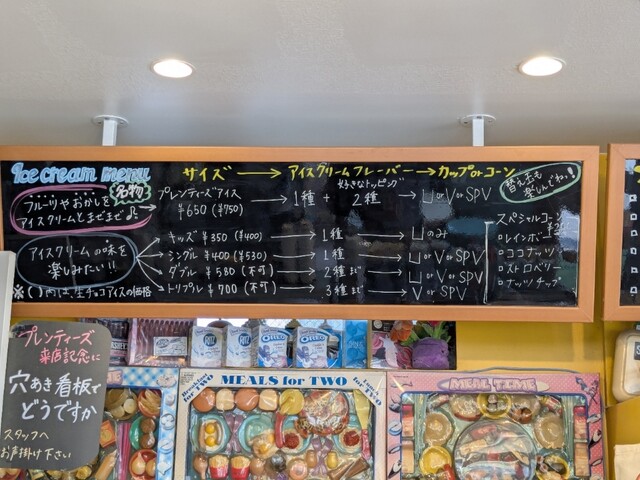 Ice cream menu
サイズ → アイスクリームフレーバー → カップ or コーン
名物
フルーツやおかしを
アイスクリームとまぜまぜ♫
プレンティーズアイス
¥650 (¥750)
1種 + 2種
好きなトッピング
∪ or V or SPV
替え玉も
楽しんでね!
アイスクリームの味を
楽しみたい!!
キッズ ¥350 (¥400) → 1種 → ∪のみ
シングル ¥400 (¥530) → 1種 → ∪ or V or SPV
ダブル ¥580 (不可) → 2種まで → ∪ or V or SPV
トリプル ¥700 (不可) → 3種まで → V or SPV
※( )内は、生チョコアイスの価格
スペシャルコーン
レインボー
ココナッツ
ストロベリー
ナッツチップ
プレンティーズ
来店記念に
穴あき看板で
どうですか
スタッフへ
お声掛け下さい
RITZ
OREO
OREO
MEALS for TWO
MEAL TIME